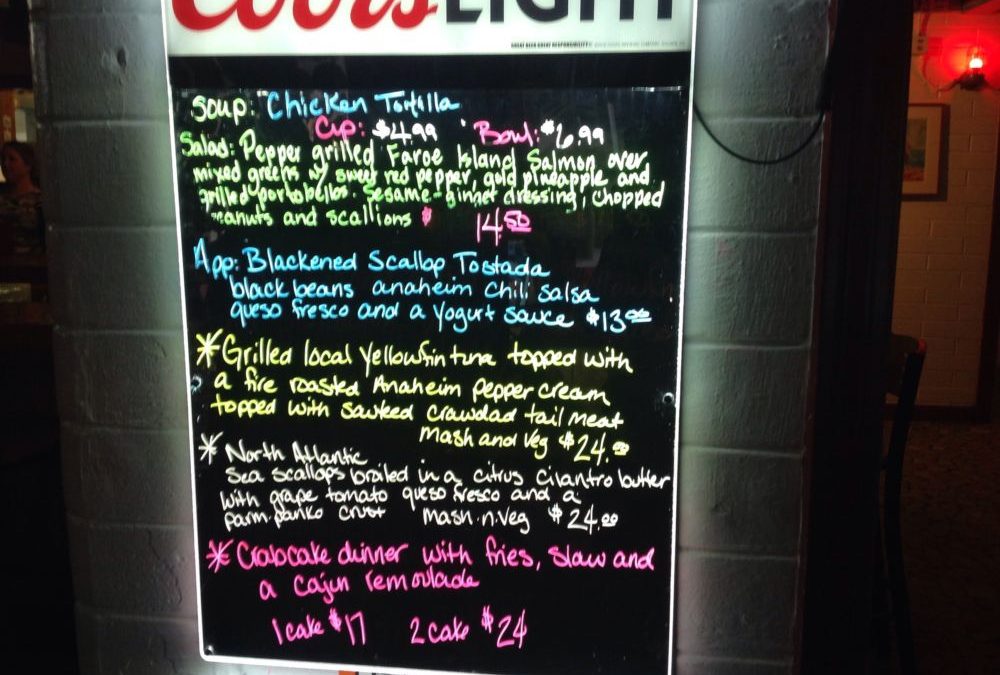 Coors LIGHT
GREAT BEER GREAT RESPONSIBILITY
Soup: Chicken Tortilla
Cup: $4.99 Bowl: $6.99
Salad: Pepper grilled Faroe Island Salmon over
mixed greens w/ sweet red pepper, gold pineapple and
grilled portabellos, sesame-ginger dressing, chopped
peanuts and scallions $ 14.50
App: Blackened Scallop Tostada
black beans anaheim chili salsa
queso fresco and a yogurt sauce $13.00
*Grilled local Yellowfin tuna topped with
a fire roasted Anaheim pepper cream
topped with sauteed crawdad tail meat
Mash and Veg $24.00
* North Atlantic
Sea scallops broiled in a citrus cilantro butter
with grape tomato queso fresco and a
parm panko crust Mash n Veg $24.00
* Crabcake dinner with fries, slaw and
a cajun remoulade
1 cake $17 2 cake $24